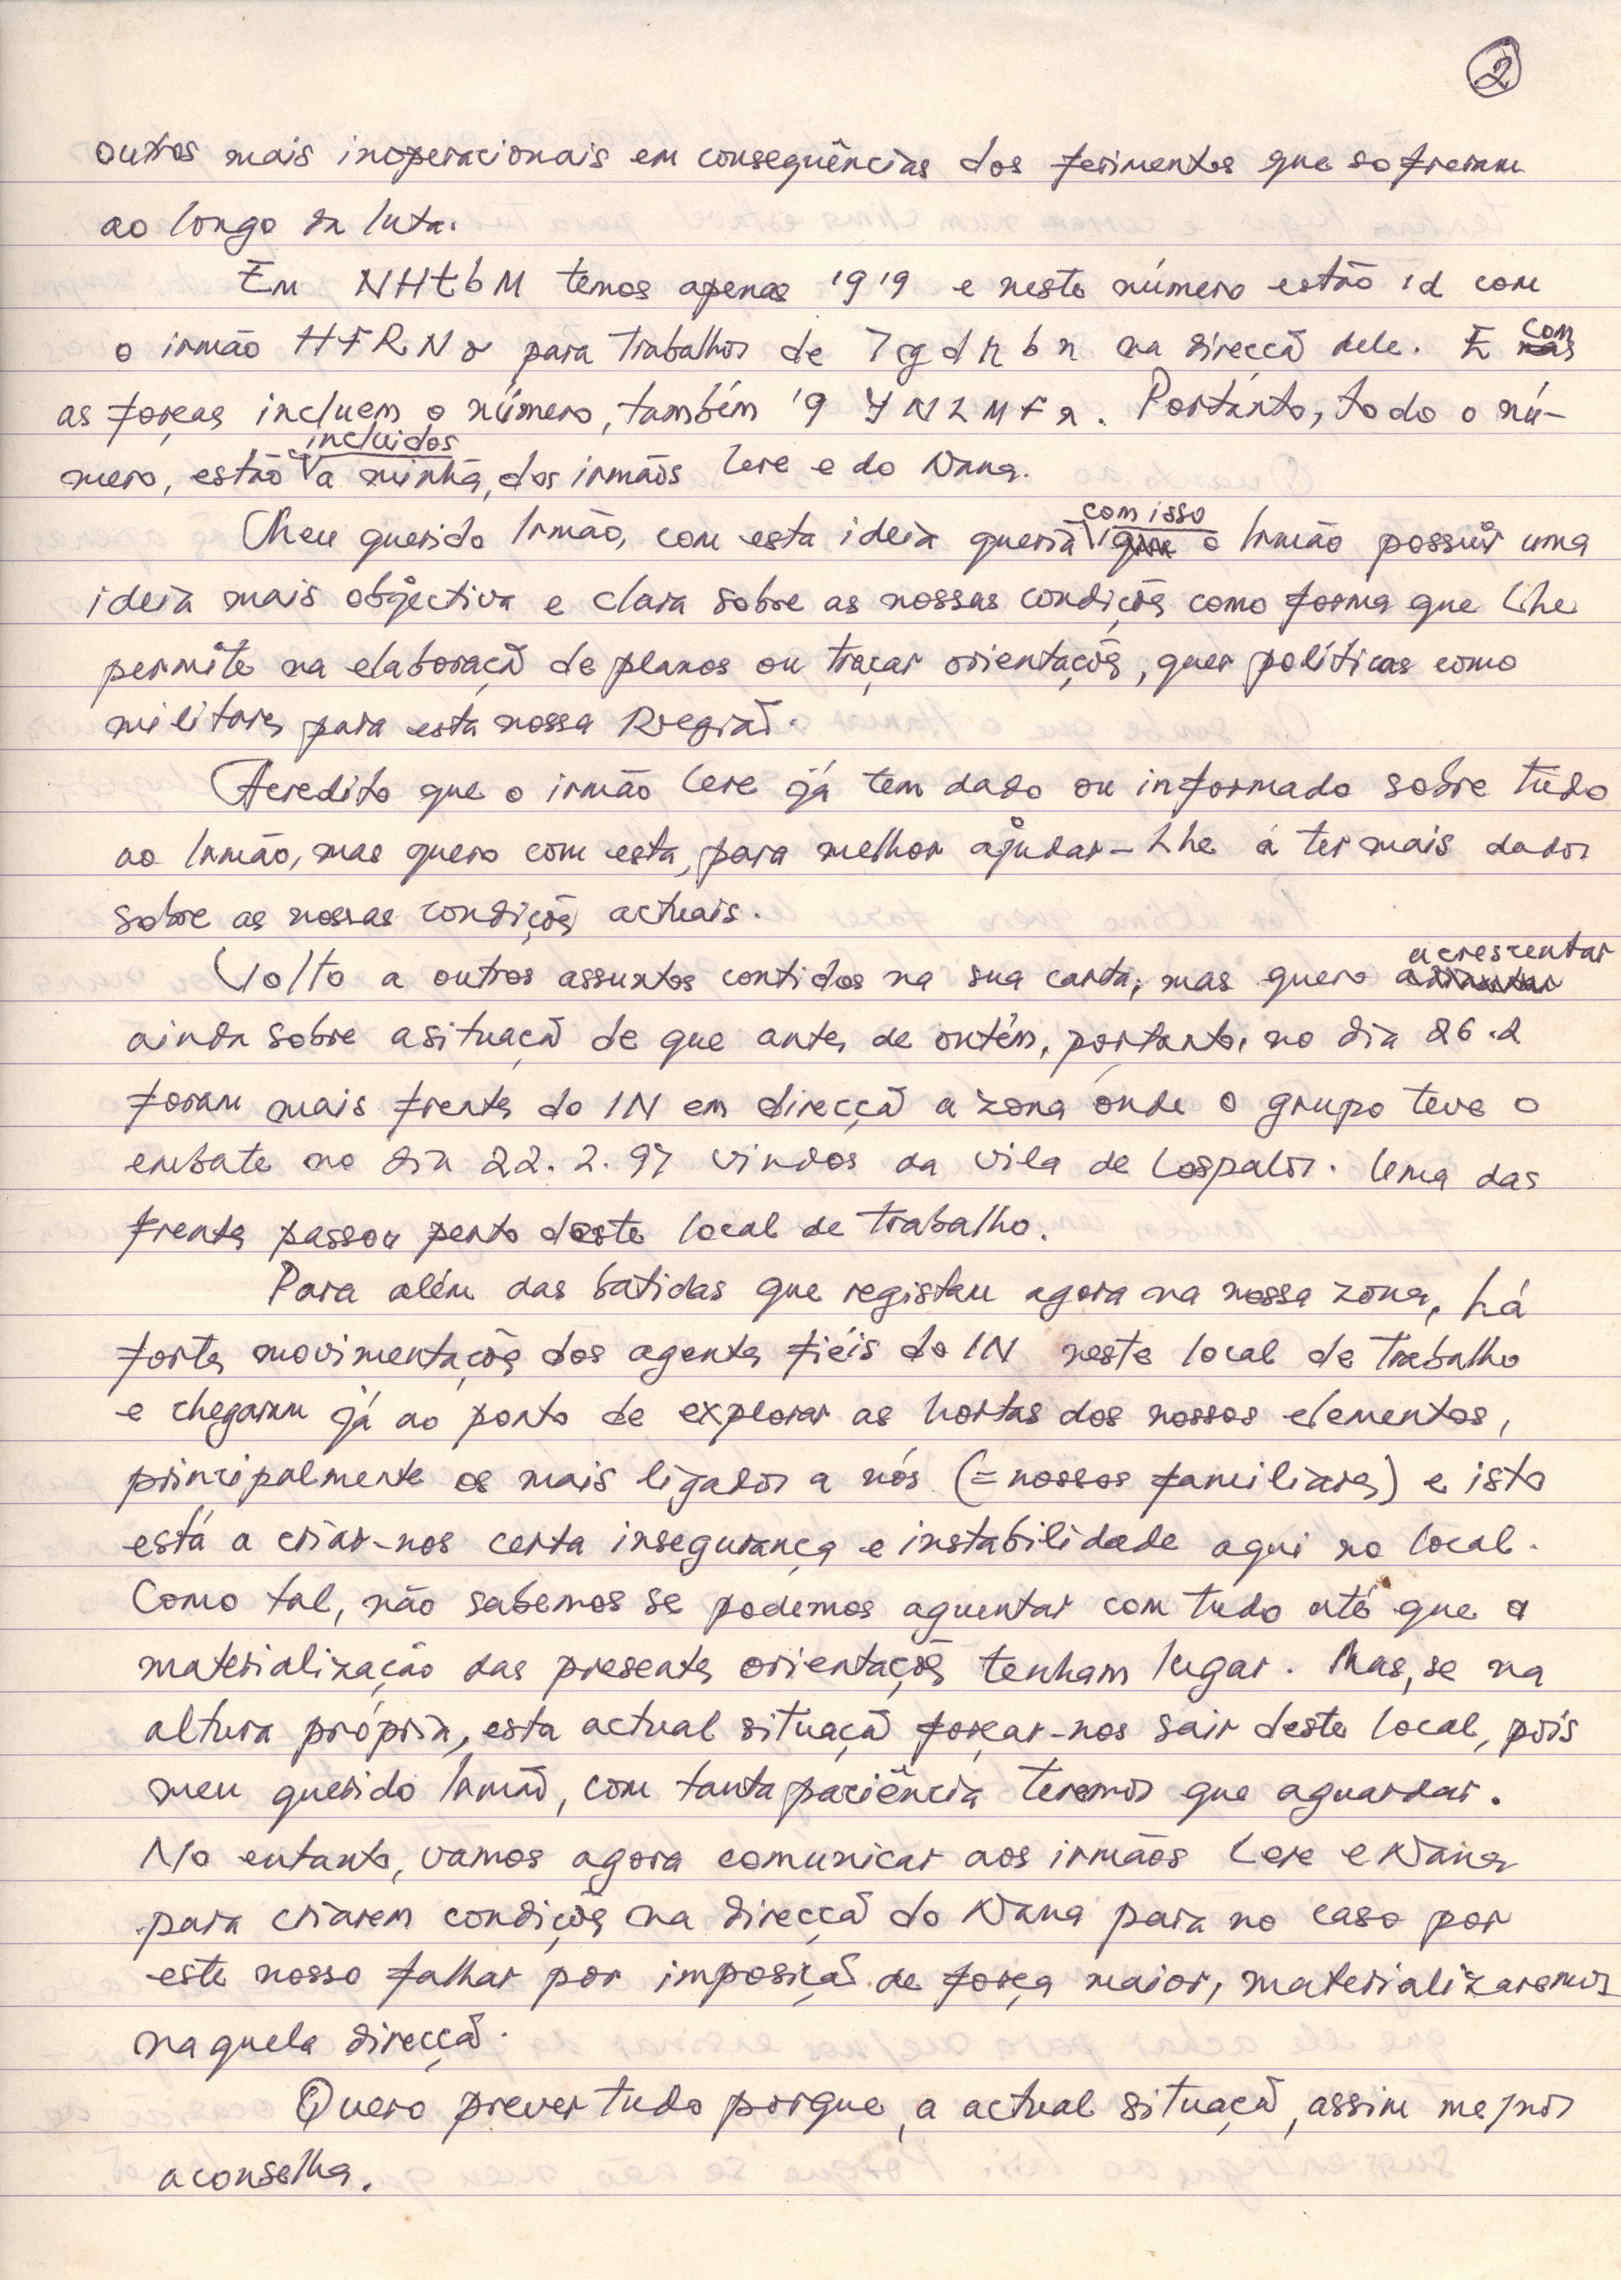 2
outros mais inoperacionais em consequências dos ferimentos que sofreram
ao longo da luta.
Em NHtbM temos apenas '9'9 e neste número estão id com
o irmão HFRNo para trabalhos de 7gdhbn na direcçã dele. E com
as forças incluem o número, também '9 YNZMFn. Portanto, todo o nú-
mero, estão incluidos a minha, dos irmãos Lere e do Nana.
Meu querido Irmão, com esta ideia queria com isso o Irmão possuir uma
ideia mais objectiva e clara sobre as nossas condições como forma que Lhe
permite na elaboraçã de planos ou traçar orientações, quer políticas como
militares para esta nossa Região.
Acredito que o irmão Lere já tem dado ou informado sobre tudo
ao Irmão, mas quero com esta, para melhor ajudar-Lhe á ter mais dados
sobre as nossas condições actuais.
Volto a outros assuntos contidos na sua carta, mas quero acrescentar
ainda sobre a situaçã de que antes de ontém, portanto, no dia 26.2
foram mais frentes do IN em direcçã a zona onde o grupo teve o
embate no dia 22.2.97 vindos da vila de Lospalos. Uma das
frentes passou perto deste local de trabalho.
Para além das batidas que registam agora na nossa zona, há
fortes movimentações dos agentes fiéis do IN neste local de trabalho
e chegaram já ao ponto de explorar as hortas dos nossos elementos,
principalmente os mais ligados a nós (= nossos familiares) e isto
está a criar-nos certa insegurança e instabilidade aqui no local.
Como tal, não sabemos se podemos aguentar com tudo até que a
materialização das presentes orientações tenham lugar. Mas, se na
altura própria, esta actual situaçã forçar-nos sair deste local, pois
meu querido Irmão, com tanta paciência teremos que aguardar.
No entanto, vamos agora comunicar aos irmãos Lere e Nana
para criarem condições na direcçã do Nana para no caso por
este nosso falhar por imposiçã de força maior, materializaremos
naquela direcçã.
Quero prever tudo porque, a actual situaçã, assim me/nos
aconselha.